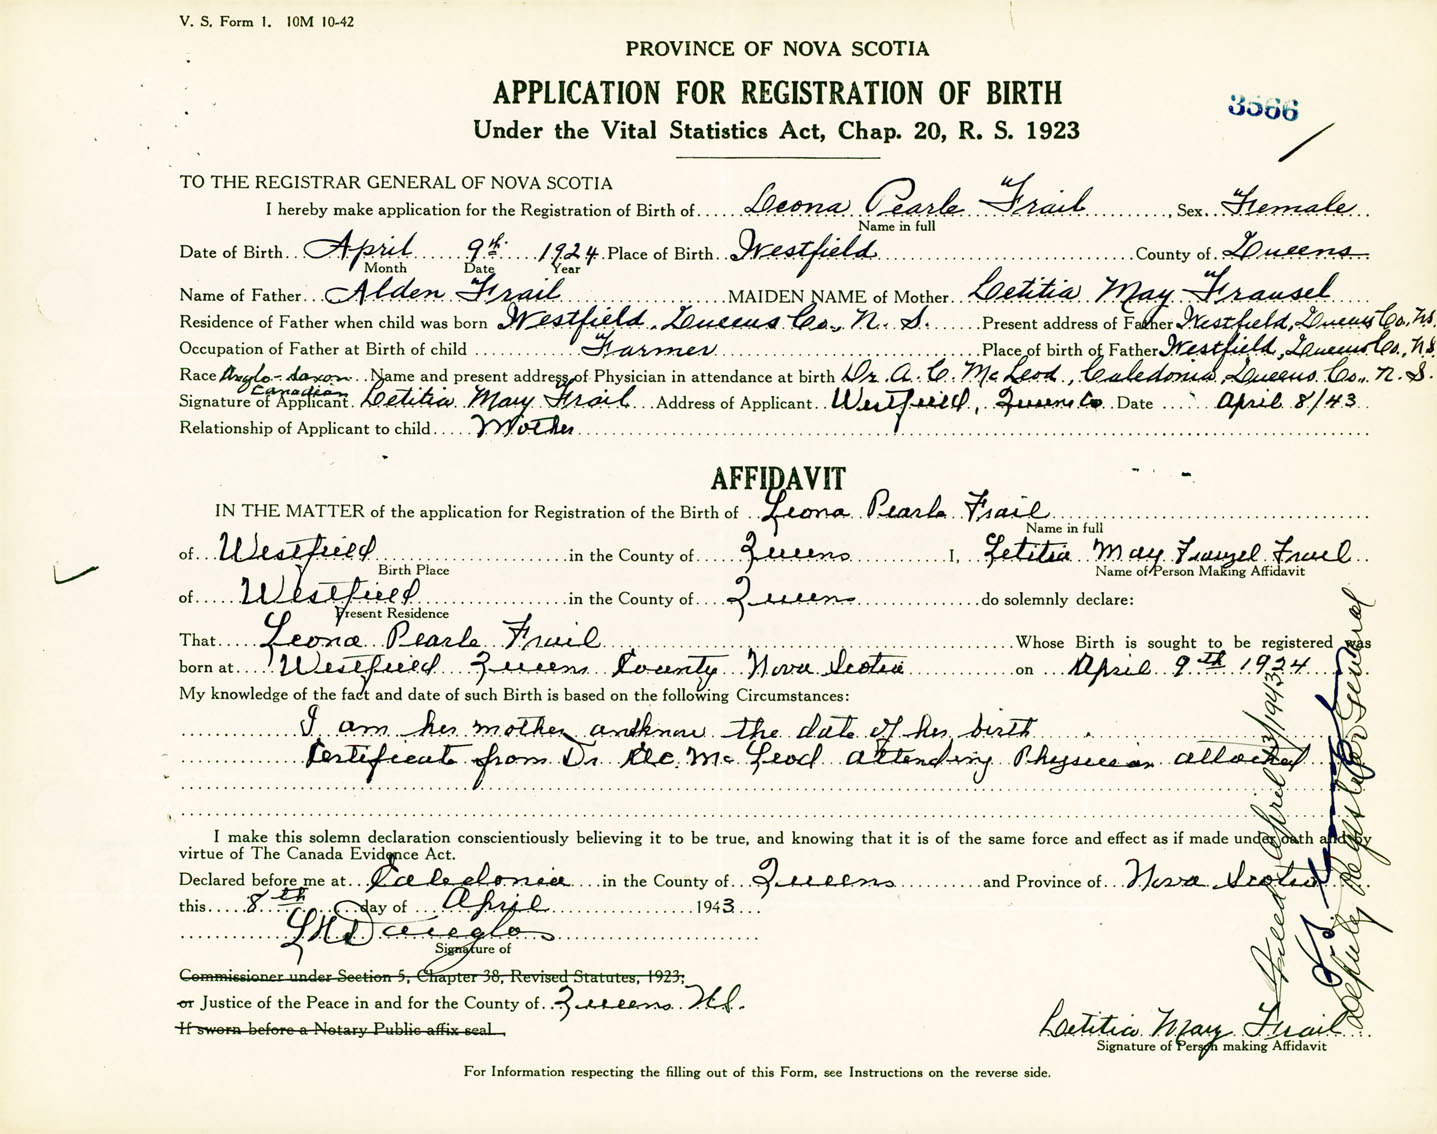 V. S. Form 1. 10M 10-42
PROVINCE OF NOVA SCOTIA
APPLICATION FOR REGISTRATION OF BIRTH
3566
Under the Vital Statistics Act, Chap. 20, R. S. 1923
TO THE REGISTRAR GENERAL OF NOVA SCOTIA
I hereby make application for the Registration of Birth of Leona Pearle Frail, Sex Female
Name in full
Date of Birth April 9th 1924 Place of Birth Westfield County of Queens
Month Date Year
Name of Father Alden Frail MAIDEN NAME of Mother Letitia May Frausel
Residence of Father when child was born Westfield, Queens Co., N. S. Present address of Father Westfield, Queens Co., N.S.
Occupation of Father at Birth of child Farmer Place of birth of Father Westfield, Queens Co., N.S.
Race Anglo-Saxon Name and present address of Physician in attendance at birth Dr. A. C. McLeod, Caledonia, Queens Co., N. S.
Canadian
Signature of Applicant Letitia Mary Frail Address of Applicant Westfield, Queens Co Date April 8/43
Relationship of Applicant to child Mother
AFFIDAVIT
IN THE MATTER of the application for Registration of the Birth of Leona Pearle Frail
Name in full
of Westfield in the County of Queens I, Letitia May Franzel Frail
Birth Place Name of Person Making Affidavit
of Westfield in the County of Queens do solemnly declare:
Present Residence
That Leona Pearle Frail Whose Birth is sought to be registered was
born at Westfield Queens County Nova Scotia on April 9th 1924
My knowledge of the fact and date of such Birth is based on the following Circumstances:
I am her mother and know the date of her birth
Certificate from Dr A.C. McLeod attending Physician attached
I make this solemn declaration conscientiously believing it to be true, and knowing that it is of the same force and effect as if made under oath and by
virtue of The Canada Evidence Act.
Declared before me at Caledonia in the County of Queens and Province of Nova Scotia
this 8th day of April 1943
Signature of
Commissioner under Section 5, Chapter 38, Revised Statutes, 1923;
or Justice of the Peace in and for the County of Queens N.S.
If sworn before a Notary Public affix seal
Letitia Mary Frail
Signature of Person making Affidavit
For Information respecting the filling out of this Form, see Instructions on the reverse side.
Filed April 13/1943
Deputy Registrar General